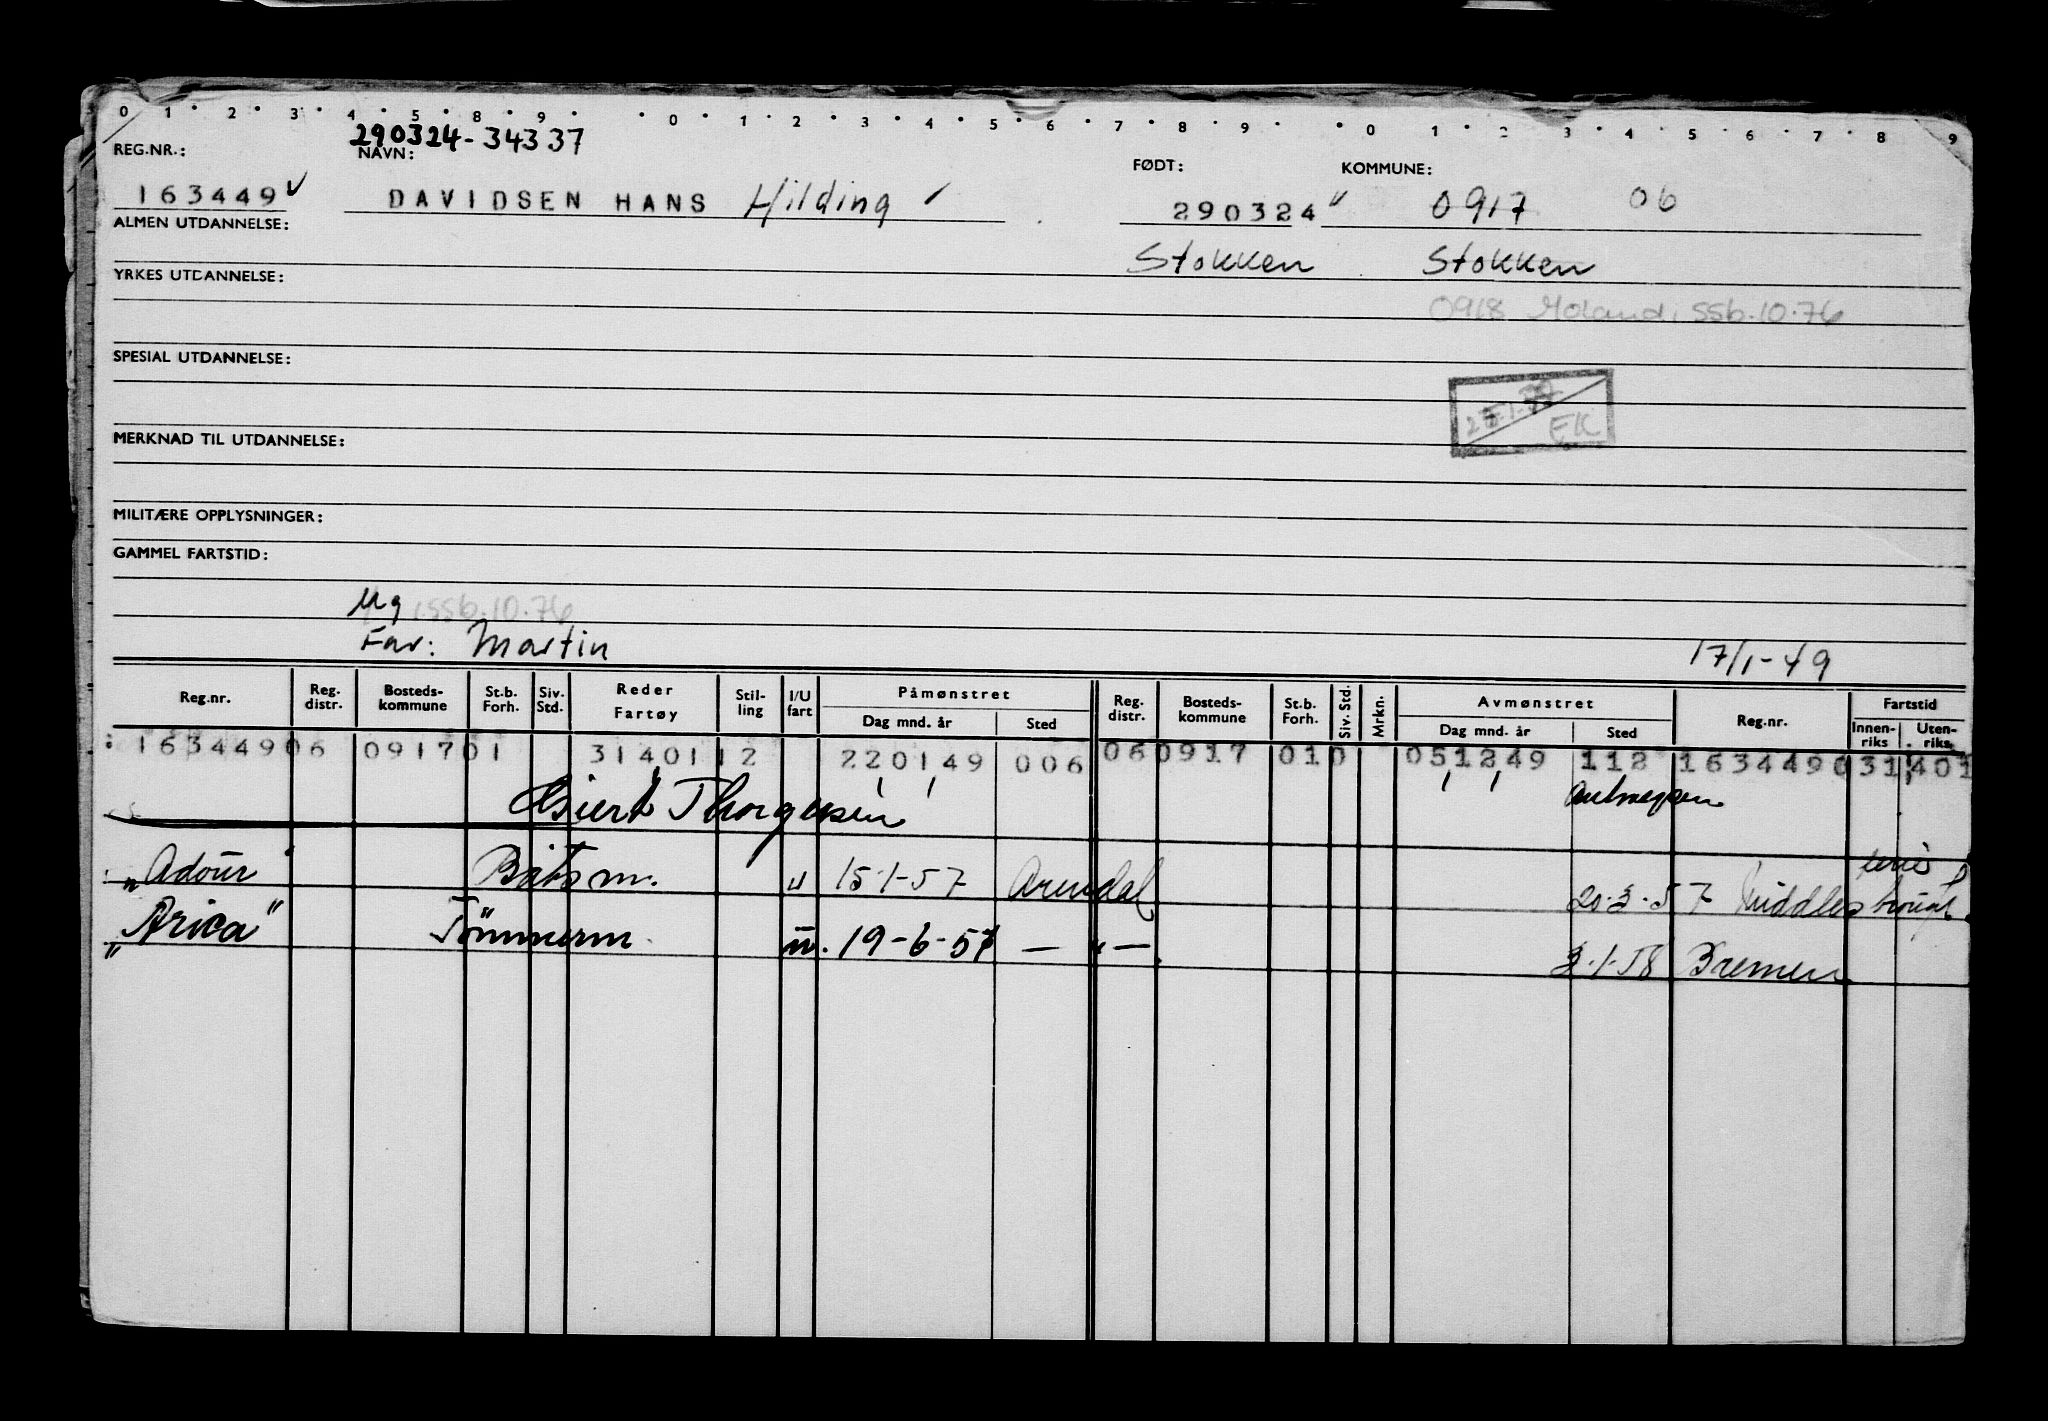 0 1 2 3 4 5 8 9 0 1 2 3 4 5 6 7 8 9 0 1 2 3 4 5 6 7 8 9
290324-34337
REG.NR.: NAVN: FØDT: KOMMUNE:
163449 DAVIDSEN HANS Hilding 290324 0917 06
ALMEN UTDANNELSE: Stokken Stokken
YRKES UTDANNELSE:
0918 Moland, ssb.10.76
SPESIAL UTDANNELSE:
EK
MERKNAD TIL UTDANNELSE:
MILITÆRE OPPLYSNINGER:
GAMMEL FARTSTID:
Ug, ssb.10.76
Far: Martin 17/1-49
Reg.nr. Reg. distr. Bosteds-kommune St.b. Forh. Siv. Std. Reder Fartøy Stil-ling I/U fart Påmønstret Dag mnd. år Sted Reg. distr. Bosteds-kommune St.b. Forh. Siv. Std. Mrkn. Avmønstret Dag mnd. år Sted Reg.nr. Fartstid Innen-riks Uten-riks
16344906 091701 31401 12 220149 006 060917 010 051249 112 163449 031 401
Thorgersen Antwerpen
"Adour" Båtsm. " 15-1-57 Arendal 20-3-57
"Arica" Tömmerm. u. 19-6-57 — " — 3-1-58 Bremen